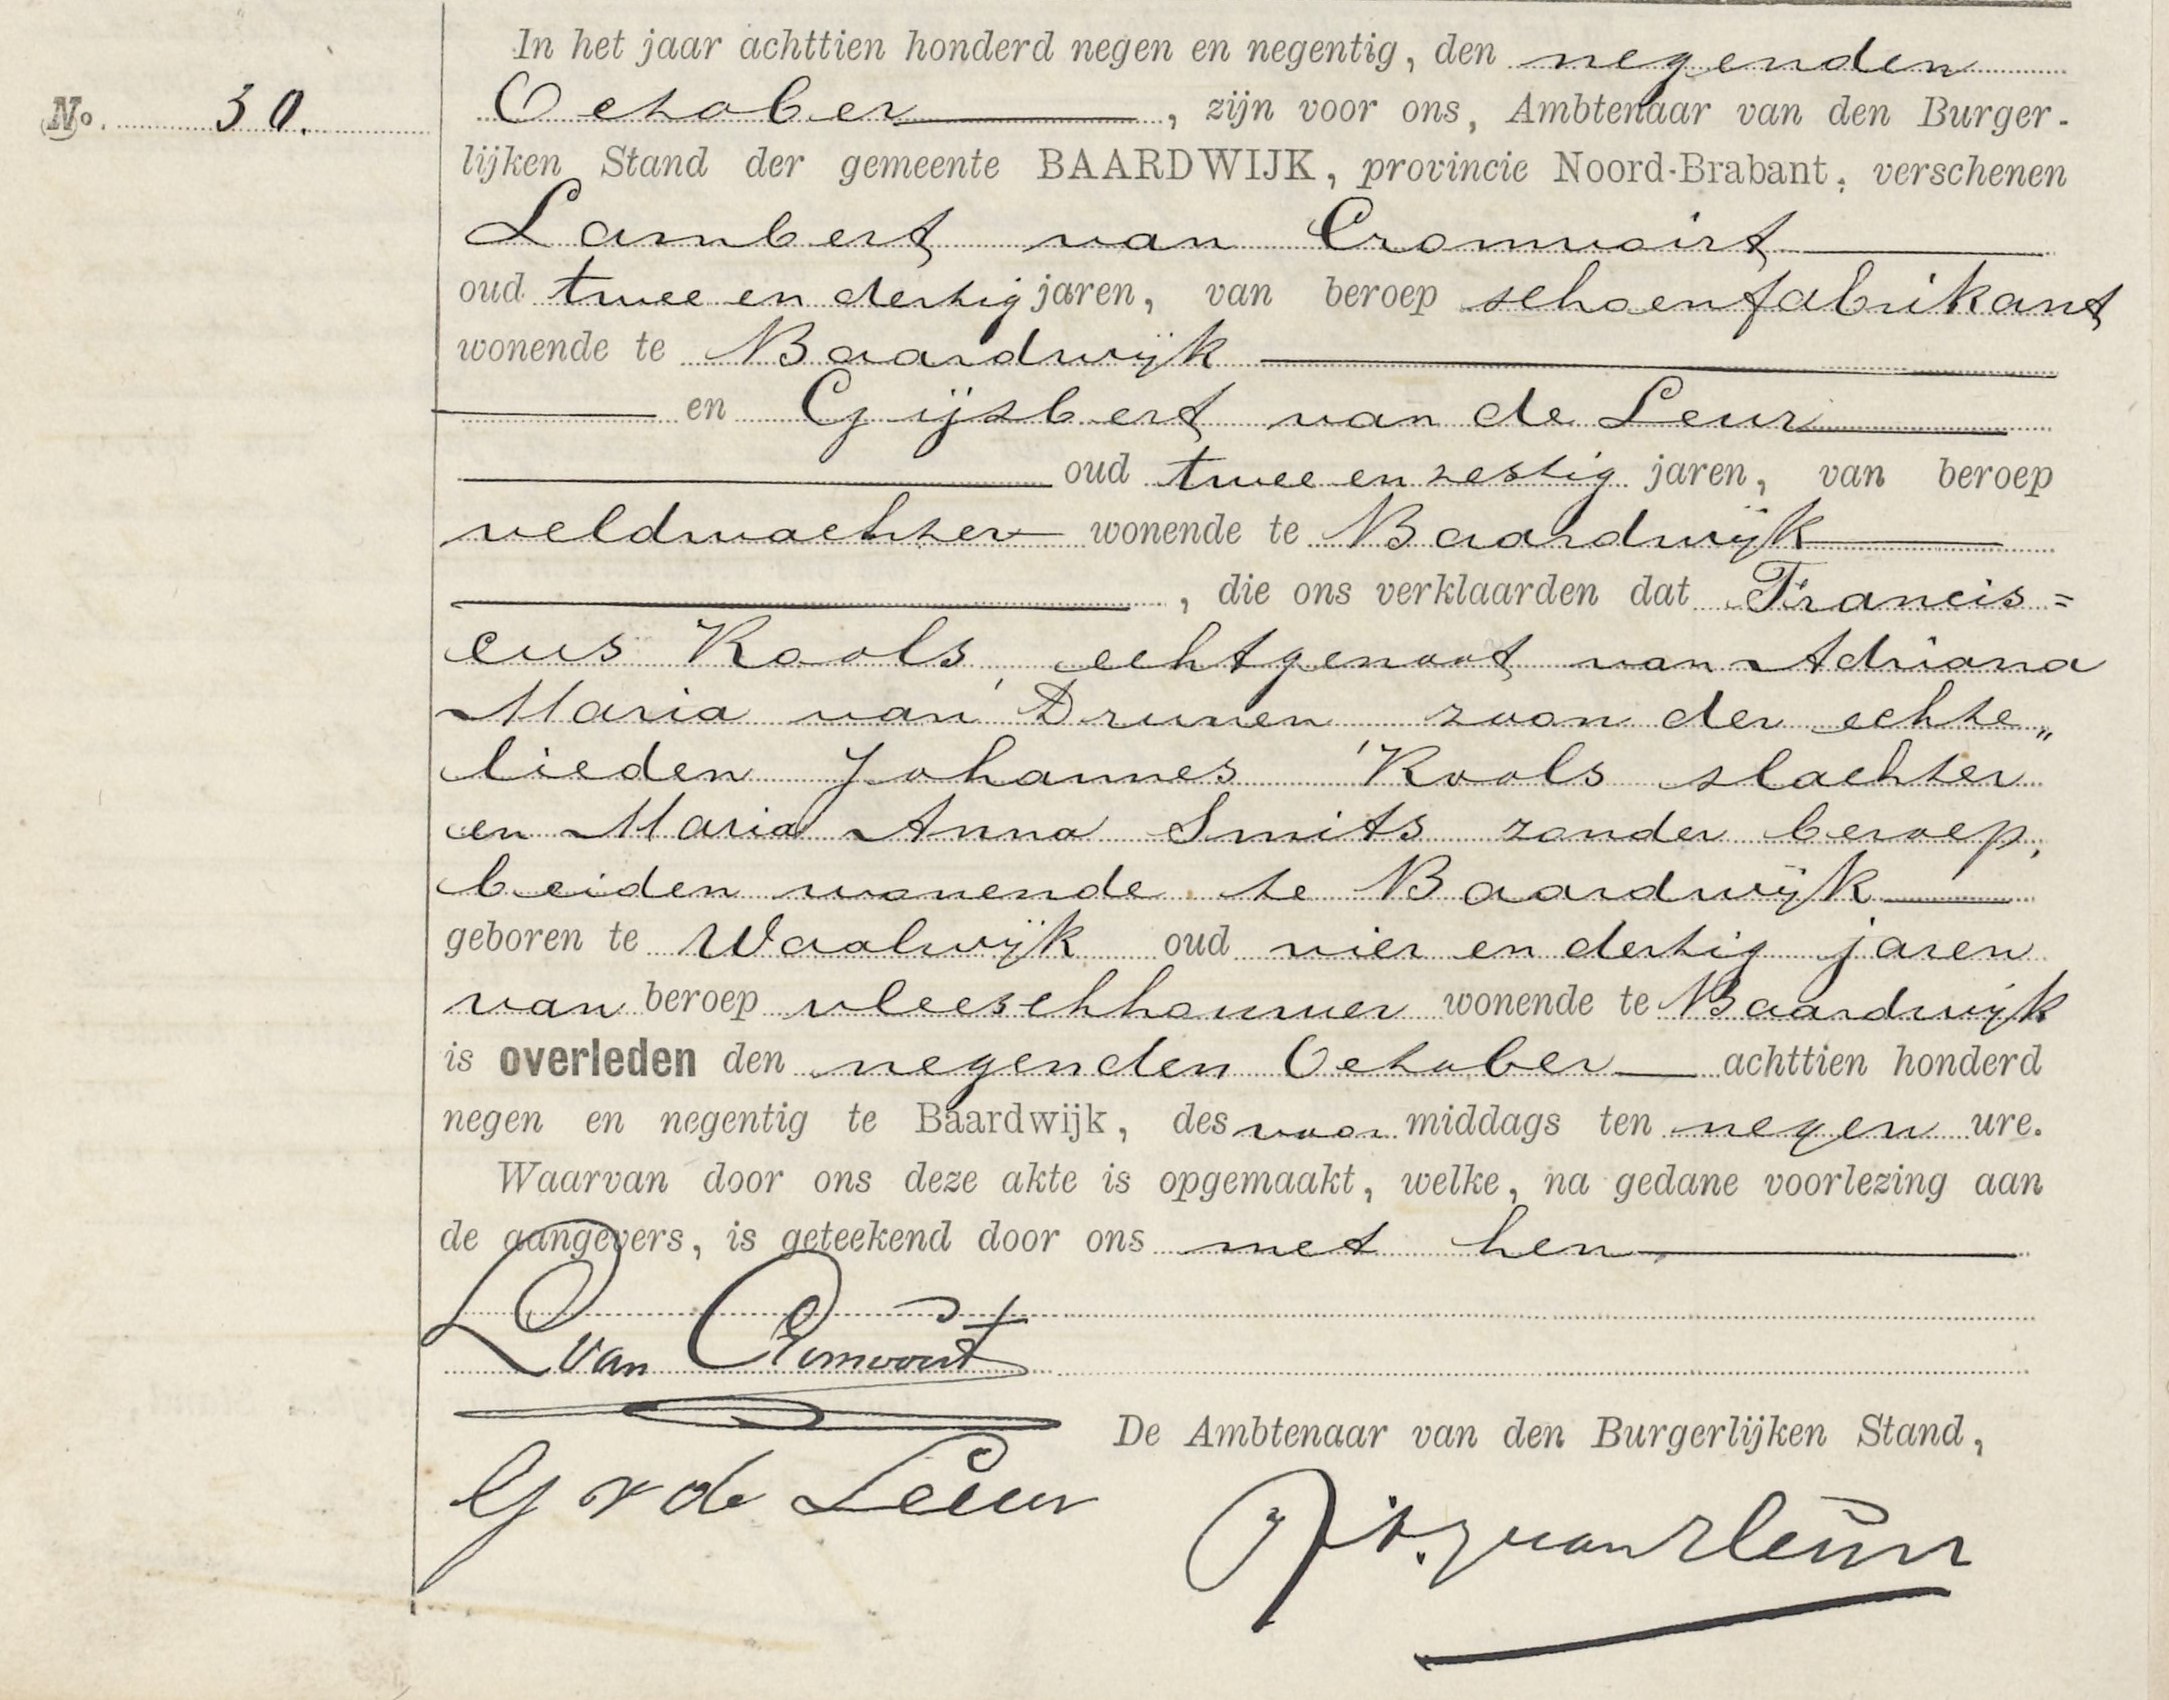 In het jaar achttien honderd negen en negentig, den negenden
No. 30.
October, zijn voor ons, Ambtenaar van den Burger-
lijken Stand der gemeente BAARDWIJK, provincie Noord-Brabant, verschenen
Lambert van Cromvoirt
oud twee en dertig jaren, van beroep schoenfabrikant
wonende te Baardwijk
en Gijsbert van de Leur
oud twee en zestig jaren, van beroep
veldwachter wonende te Baardwijk
, die ons verklaarden dat Francis=
cus Kools, echtgenoot van Adriana
Maria van Drunen, zoon der echte„
lieden Johannes Kools slachter
en Maria Anna Smits zonder beroep,
beiden wonende te Baardwijk
geboren te Waalwijk oud vier en dertig jaren
van beroep vleeschhouwer wonende te Baardwijk
is overleden den negenden October achttien honderd
negen en negentig te Baardwijk, des voor middags ten negen ure.
Waarvan door ons deze akte is opgemaakt, welke, na gedane voorlezing aan
de aangevers, is geteekend door ons met hen
L van Cromvoirt
De Ambtenaar van den Burgerlijken Stand,
G v de Leur